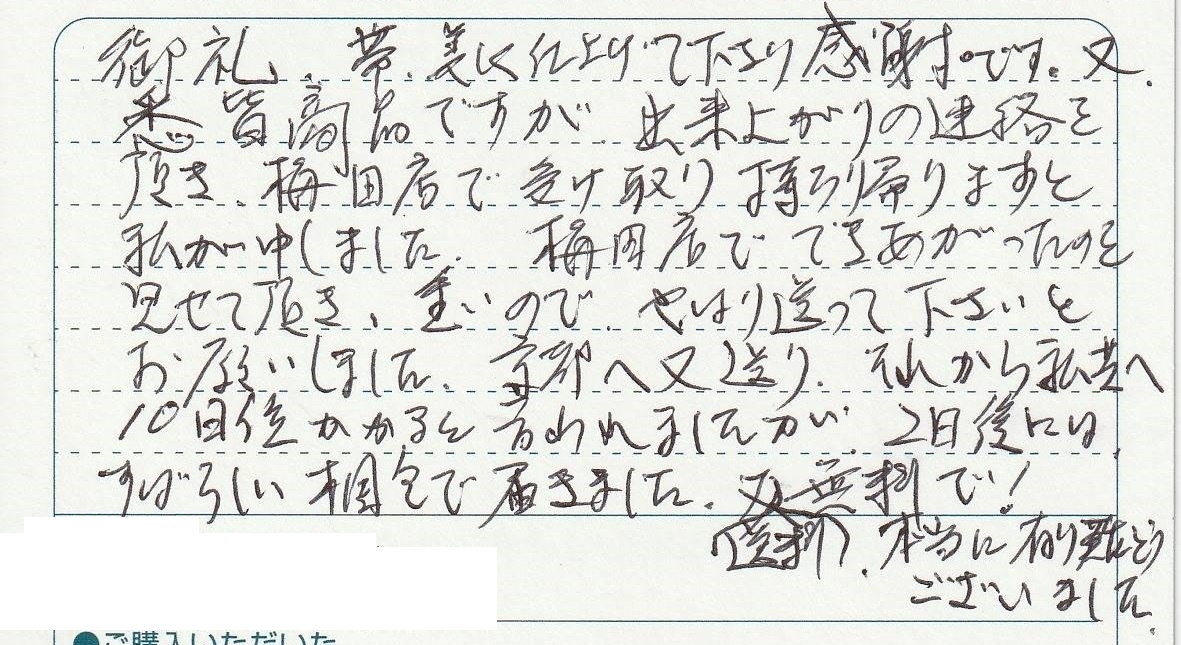 御礼、帯、美しく仕上げて下さり感謝です。又、
悉皆高品ですが、出来上がりの連絡を
頂き、梅田店で受け取り持ち帰りますと
私が申しました。梅田店でできあがったのを
見せて頂き、重いので、やはり送って下さいと
お願いしました。京都へ又送り、それから私共へ
10日位かかると言われましたが、2日後には
すばらしい梱包で届きました。又無料で!
(送料)、本当に有り難どう
ございました。
●ご購入いただいた